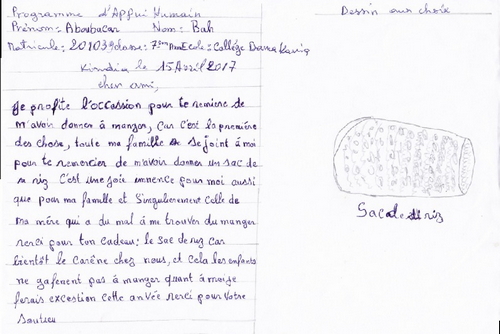 Programme d'Appui Humain
Prénom: Aboubacar Nom: Bah
Matricule: 20103 classe: 7ème Ecole: Collège
Kindia le 15 Avril 2017
cher ami,
je profite l'occassion pour te remercie de
m'avoir donner à manger, car c'est la première
des chose, toute ma famille se joint à moi
pour te remercier de m'avoir donner un sac de
riz C'est une joie immence pour moi aussi
que pour ma famille et singulierement celle de
ma mère qui a du mal à me trouver du manger
merci pour ton cadeau: le sac de riz car
bientôt le carême chez nous, et cela les enfants
ne gafenent pas à manger quant à moi je
ferais excestion cette année merci pour votre
soutieu
Dessin aux choix
Sac de riz